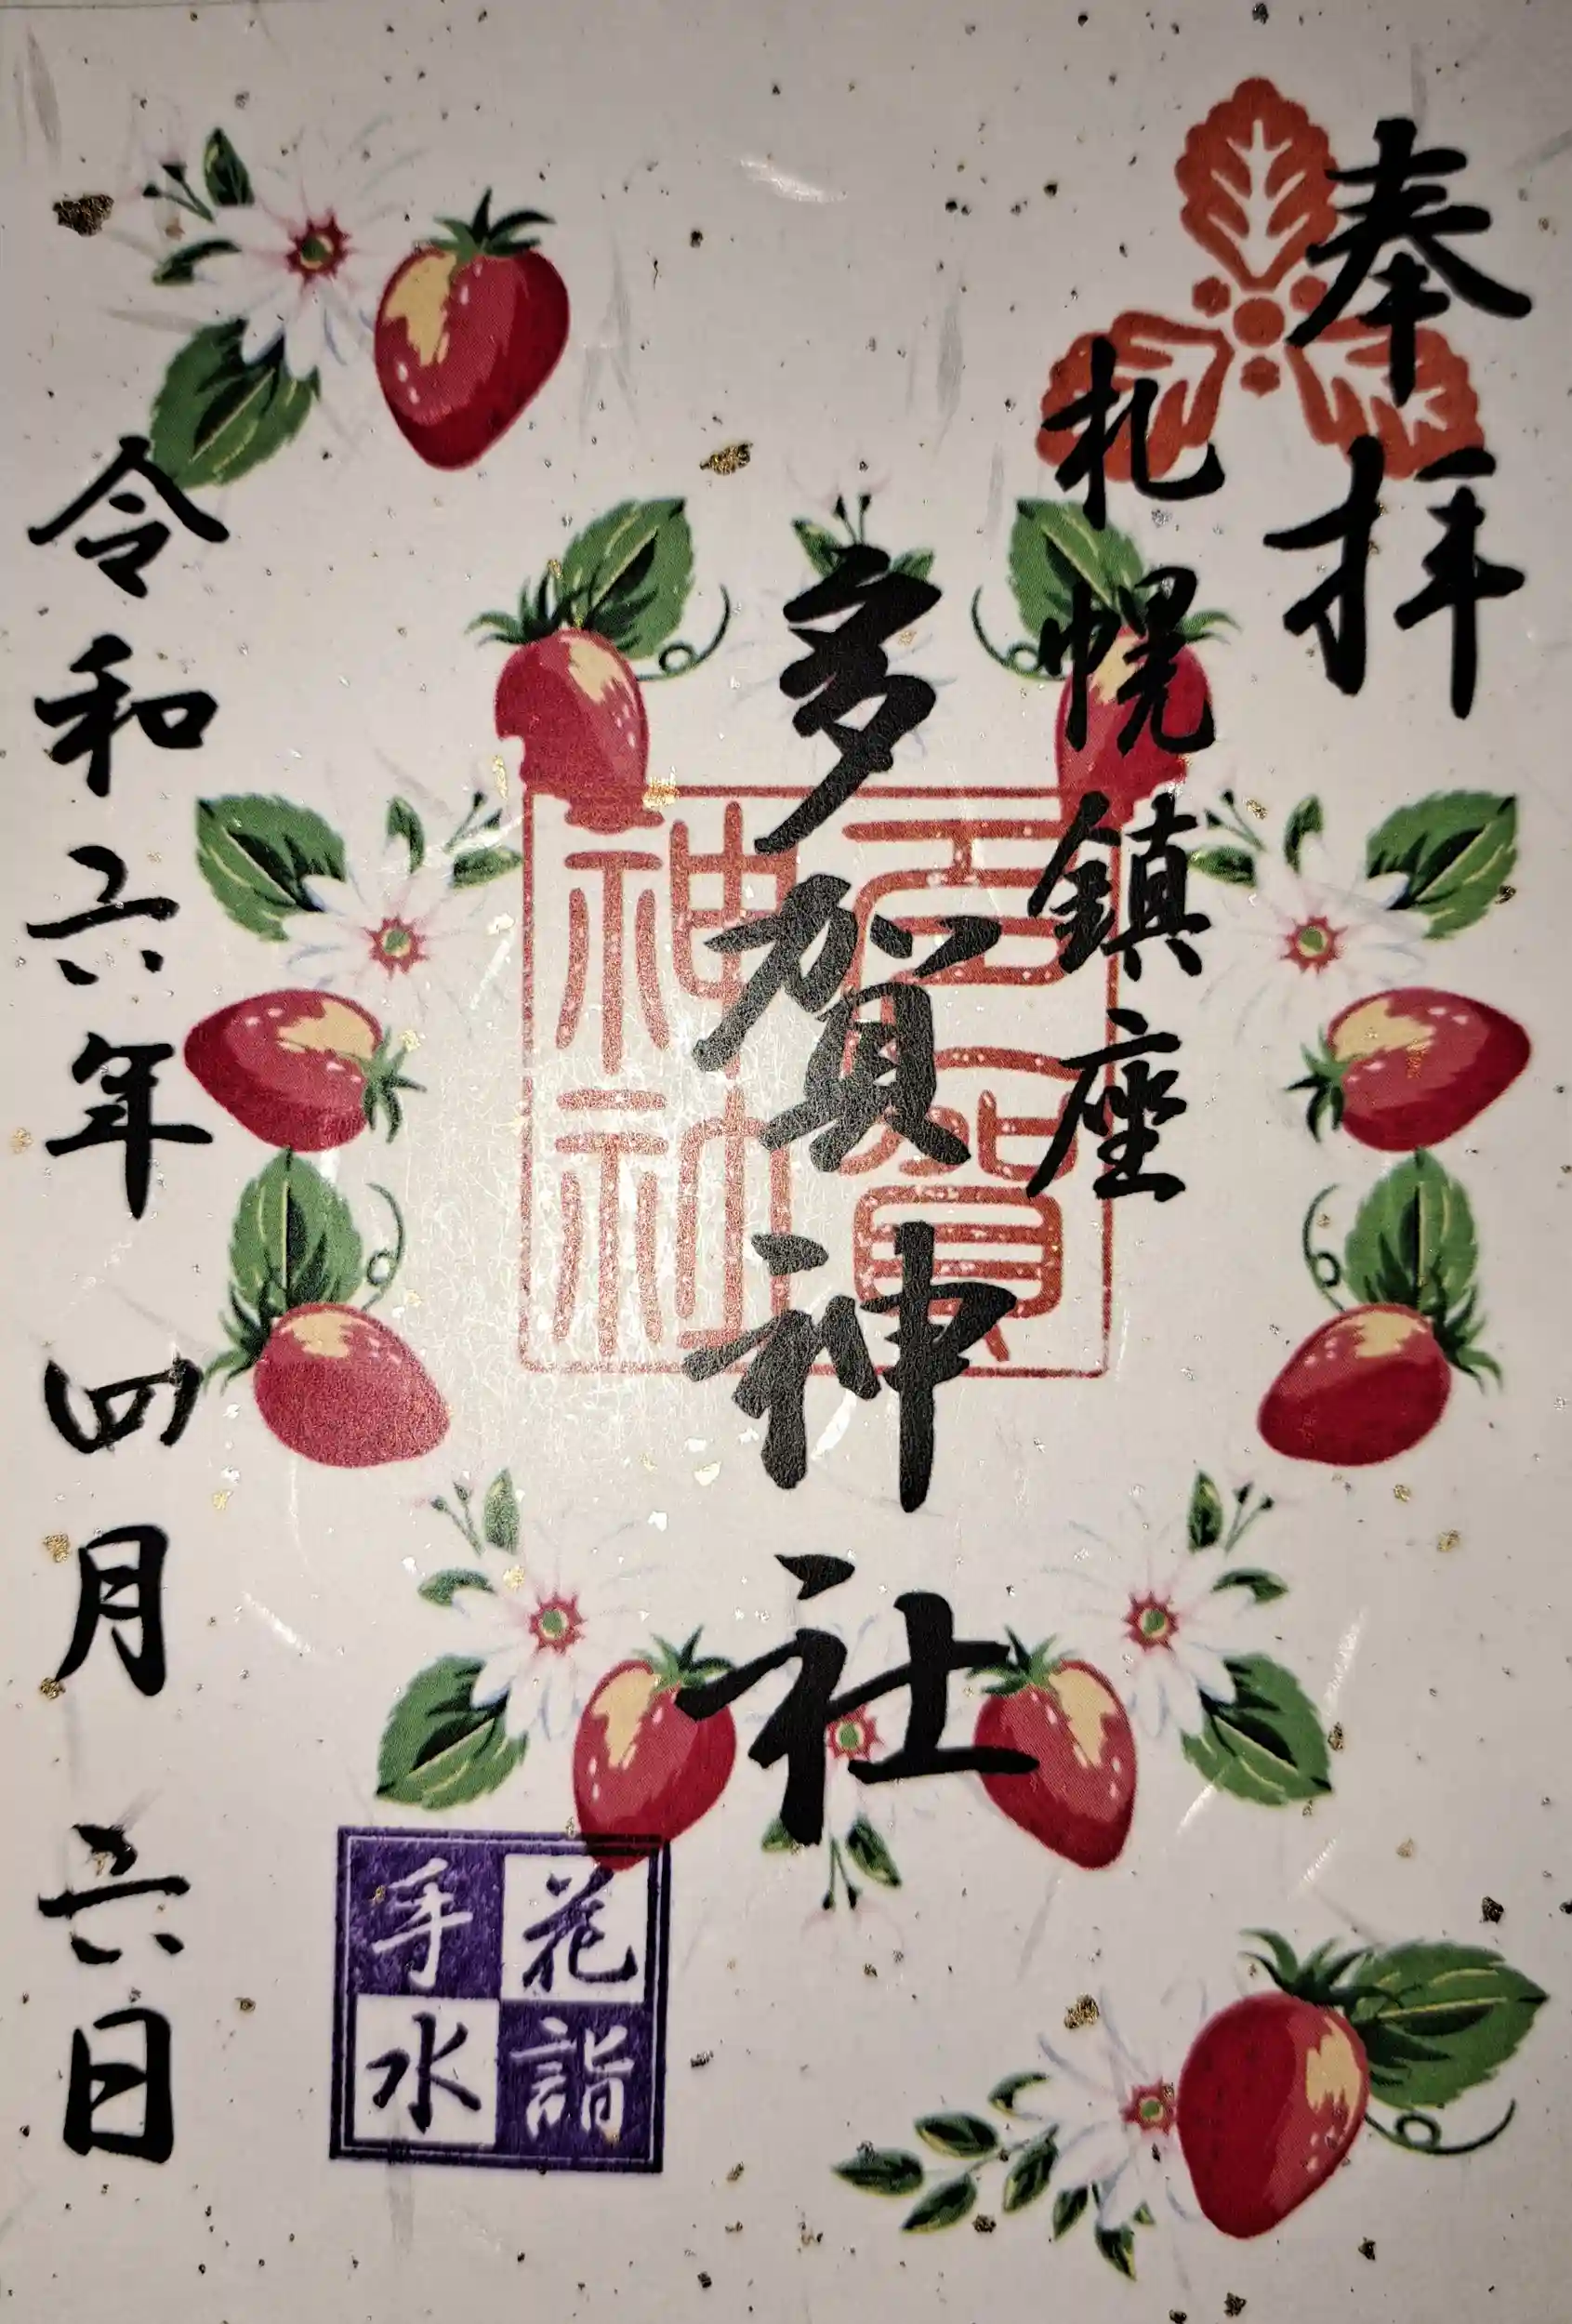 奉拝
札幌鎮座
多賀神社
多賀神社
花詣
手水
令和六年四月六日